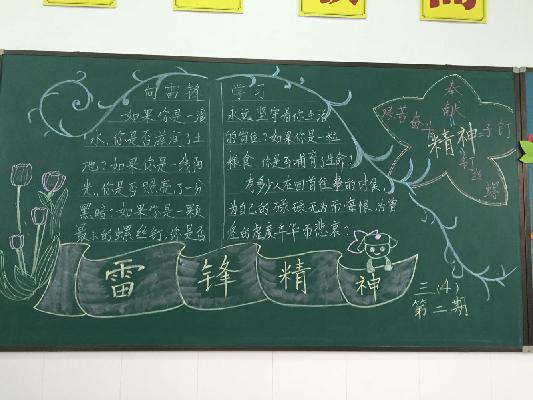 向雷锋
学习
如果你是一滴
水，你是否滋润了土
地？如果你是一线阳
光，你是否照亮了一分
黑暗？如果你是一颗
最小的螺丝钉，你是否
永远坚守着你生活
的岗位？如果你是一粒
粮食，你是否哺育了生命？
有多少人在回首往事的时候，
为自己的碌碌无为而悔恨，为曾
经的虚度年华而悲哀？
奉献
艰苦奋斗
精神
钉子
螺丝钉
雷锋精神
三（4）
第二期